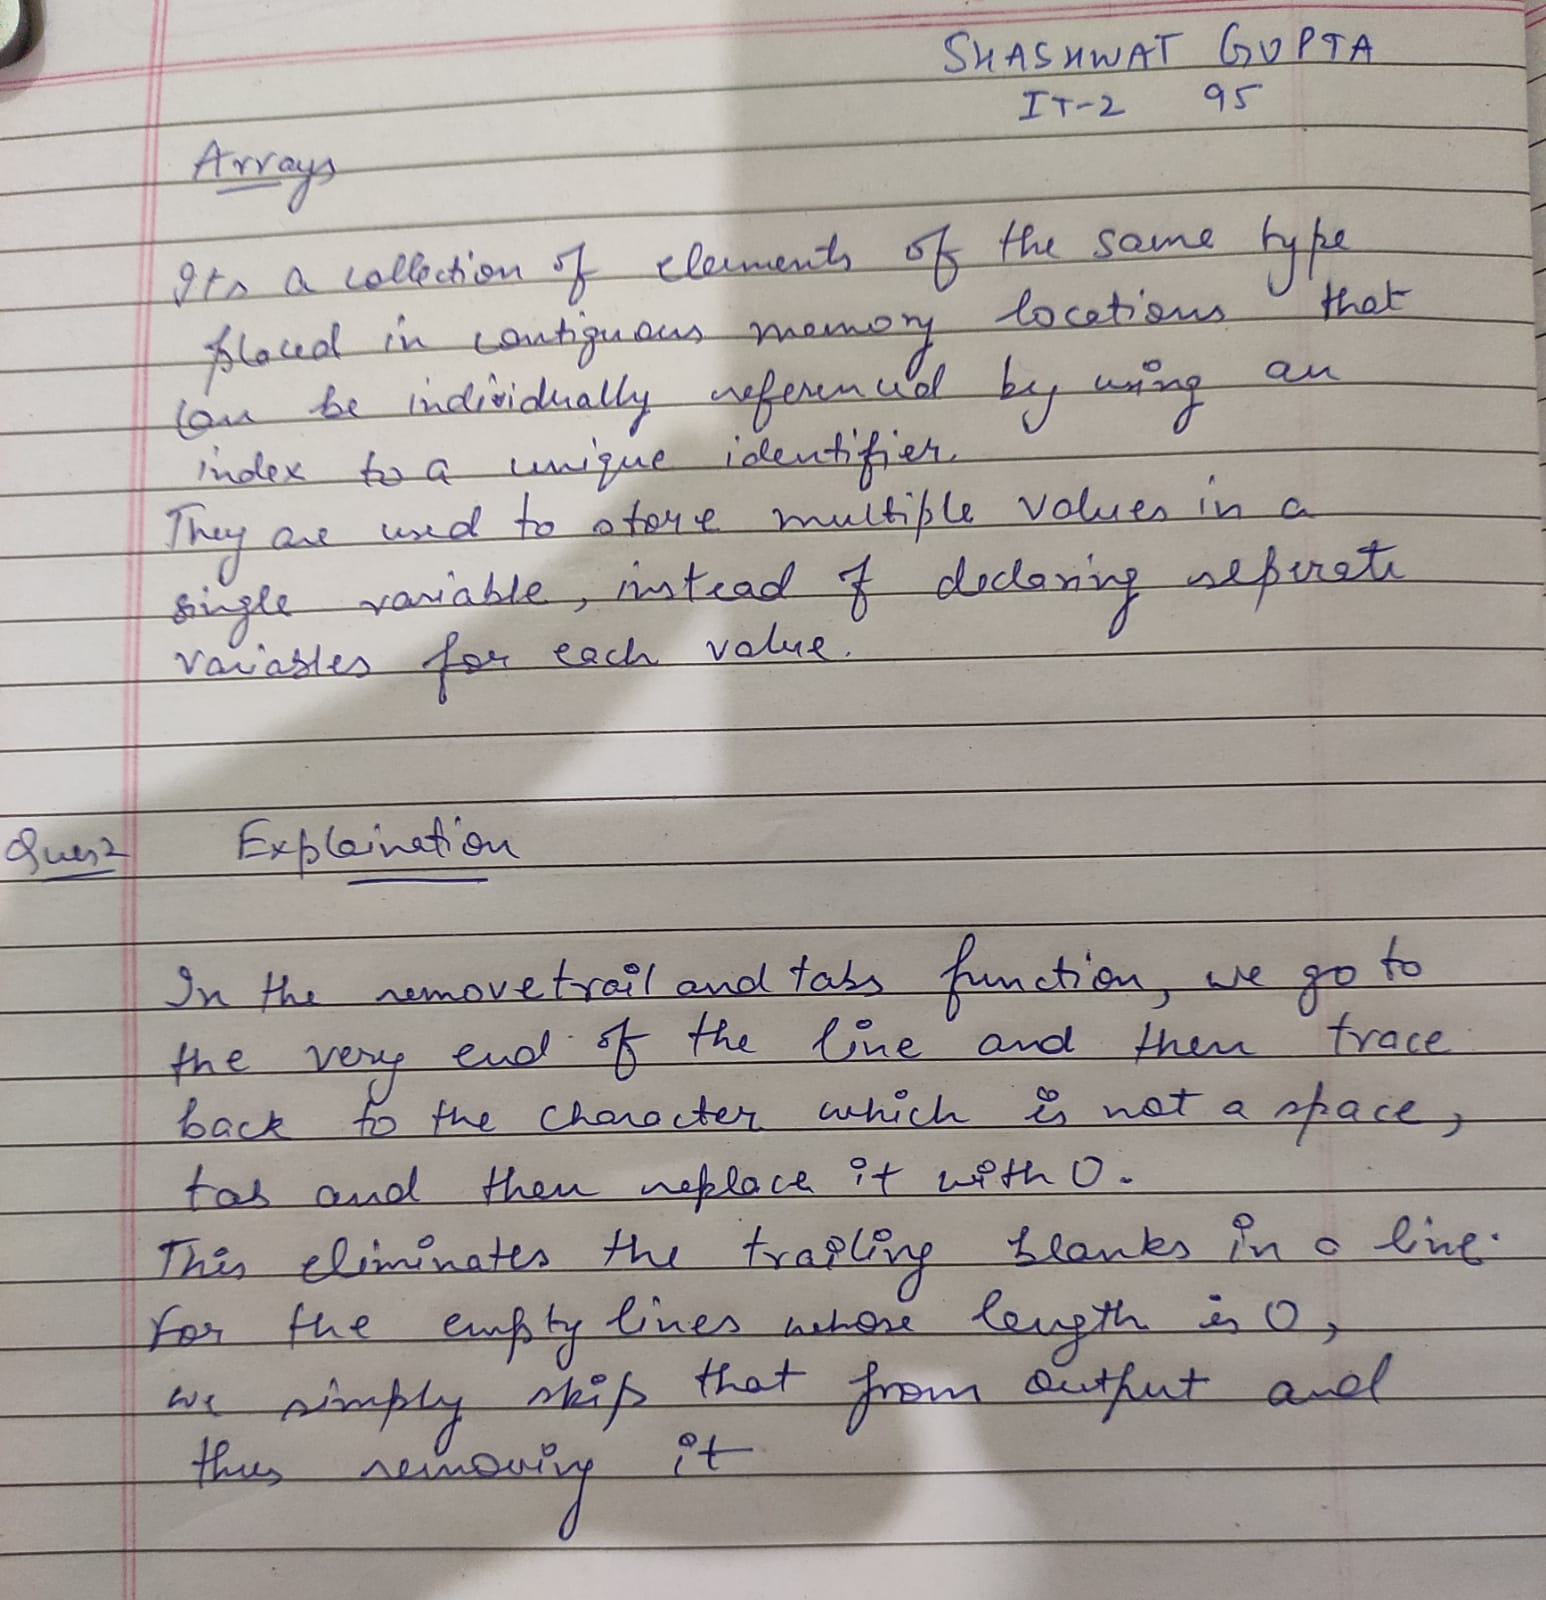 SHASHWAT GUPTA
IT-2 95
Arrays
Its a collection of elements of the same type
placed in contiguous memory locations that
can be individually referenced by using an
index to a unique identifier.
They are used to store multiple values in a
single variable, instead of declaring seperate
variables for each value.
Ques2 Explaination
In the removetrail and tabs function, we go to
the very end of the line and then trace
back to the character which is not a space,
tab and then replace it with 0.
This eliminates the trailing blanks in a line.
For the empty lines whose length is 0,
we simply skip that from output and
thus removing it